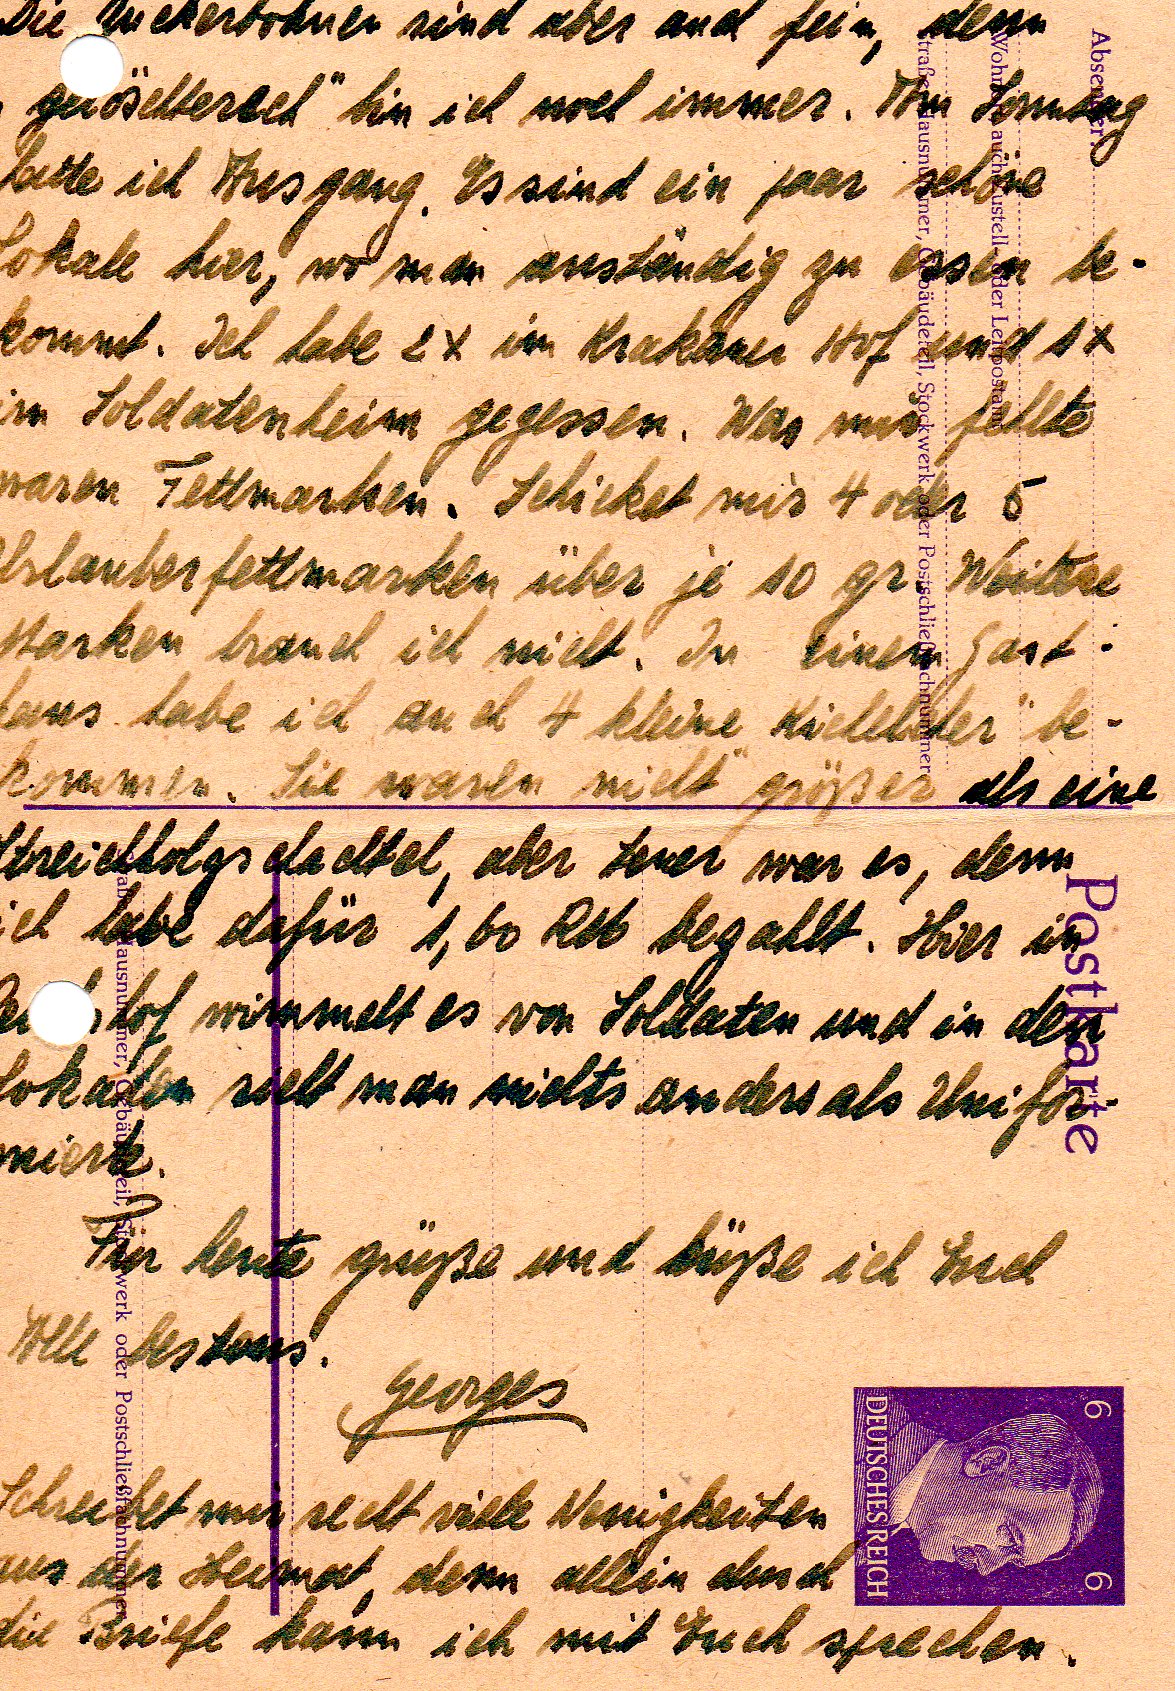 Die Zuckerbohnen sind aber auch fein, denn
bin ich noch immer. Am Sonntag
hatte ich Ausgang. Es sind ein paar schöne
Lokale hier, wo man anständig zu essen be-
kommt. Ich habe 2x im Krakauer Hof und 1x
im Soldatenheim gegessen. Was mir fehlte
waren Fettmarken. Schicket mir 4 oder 5
Urlauberfettmarken über je 10 gr. Weitere
Marken brauch ich nicht. In einem Gast-
haus habe ich auch 4 kleine be-
kommen. Sie waren nicht größer als eine
aber teuer war es, denn
ich habe dafür 1,60 RM bezahlt. Hier in
wimmelt es von Soldaten und in den
Lokalen sieht man nichts anders als Unifor-
mierte.
Für heute grüße und küße ich Euch
Alle bestens.
Georges
Schreibet mir recht viele Neuigkeiten
aus der Heimat, denn allein durch
die Briefe kann ich mit Euch sprechen.
Absender:
Wohnort, auch Zustell- oder Leitpostamt
Straße, Hausnummer, Gebäudeteil, Stockwerk oder Postschließfachnummer
Postkarte
Straße, Hausnummer, Gebäudeteil, Stockwerk oder Postschließfachnummer
6 6
DEUTSCHES REICH